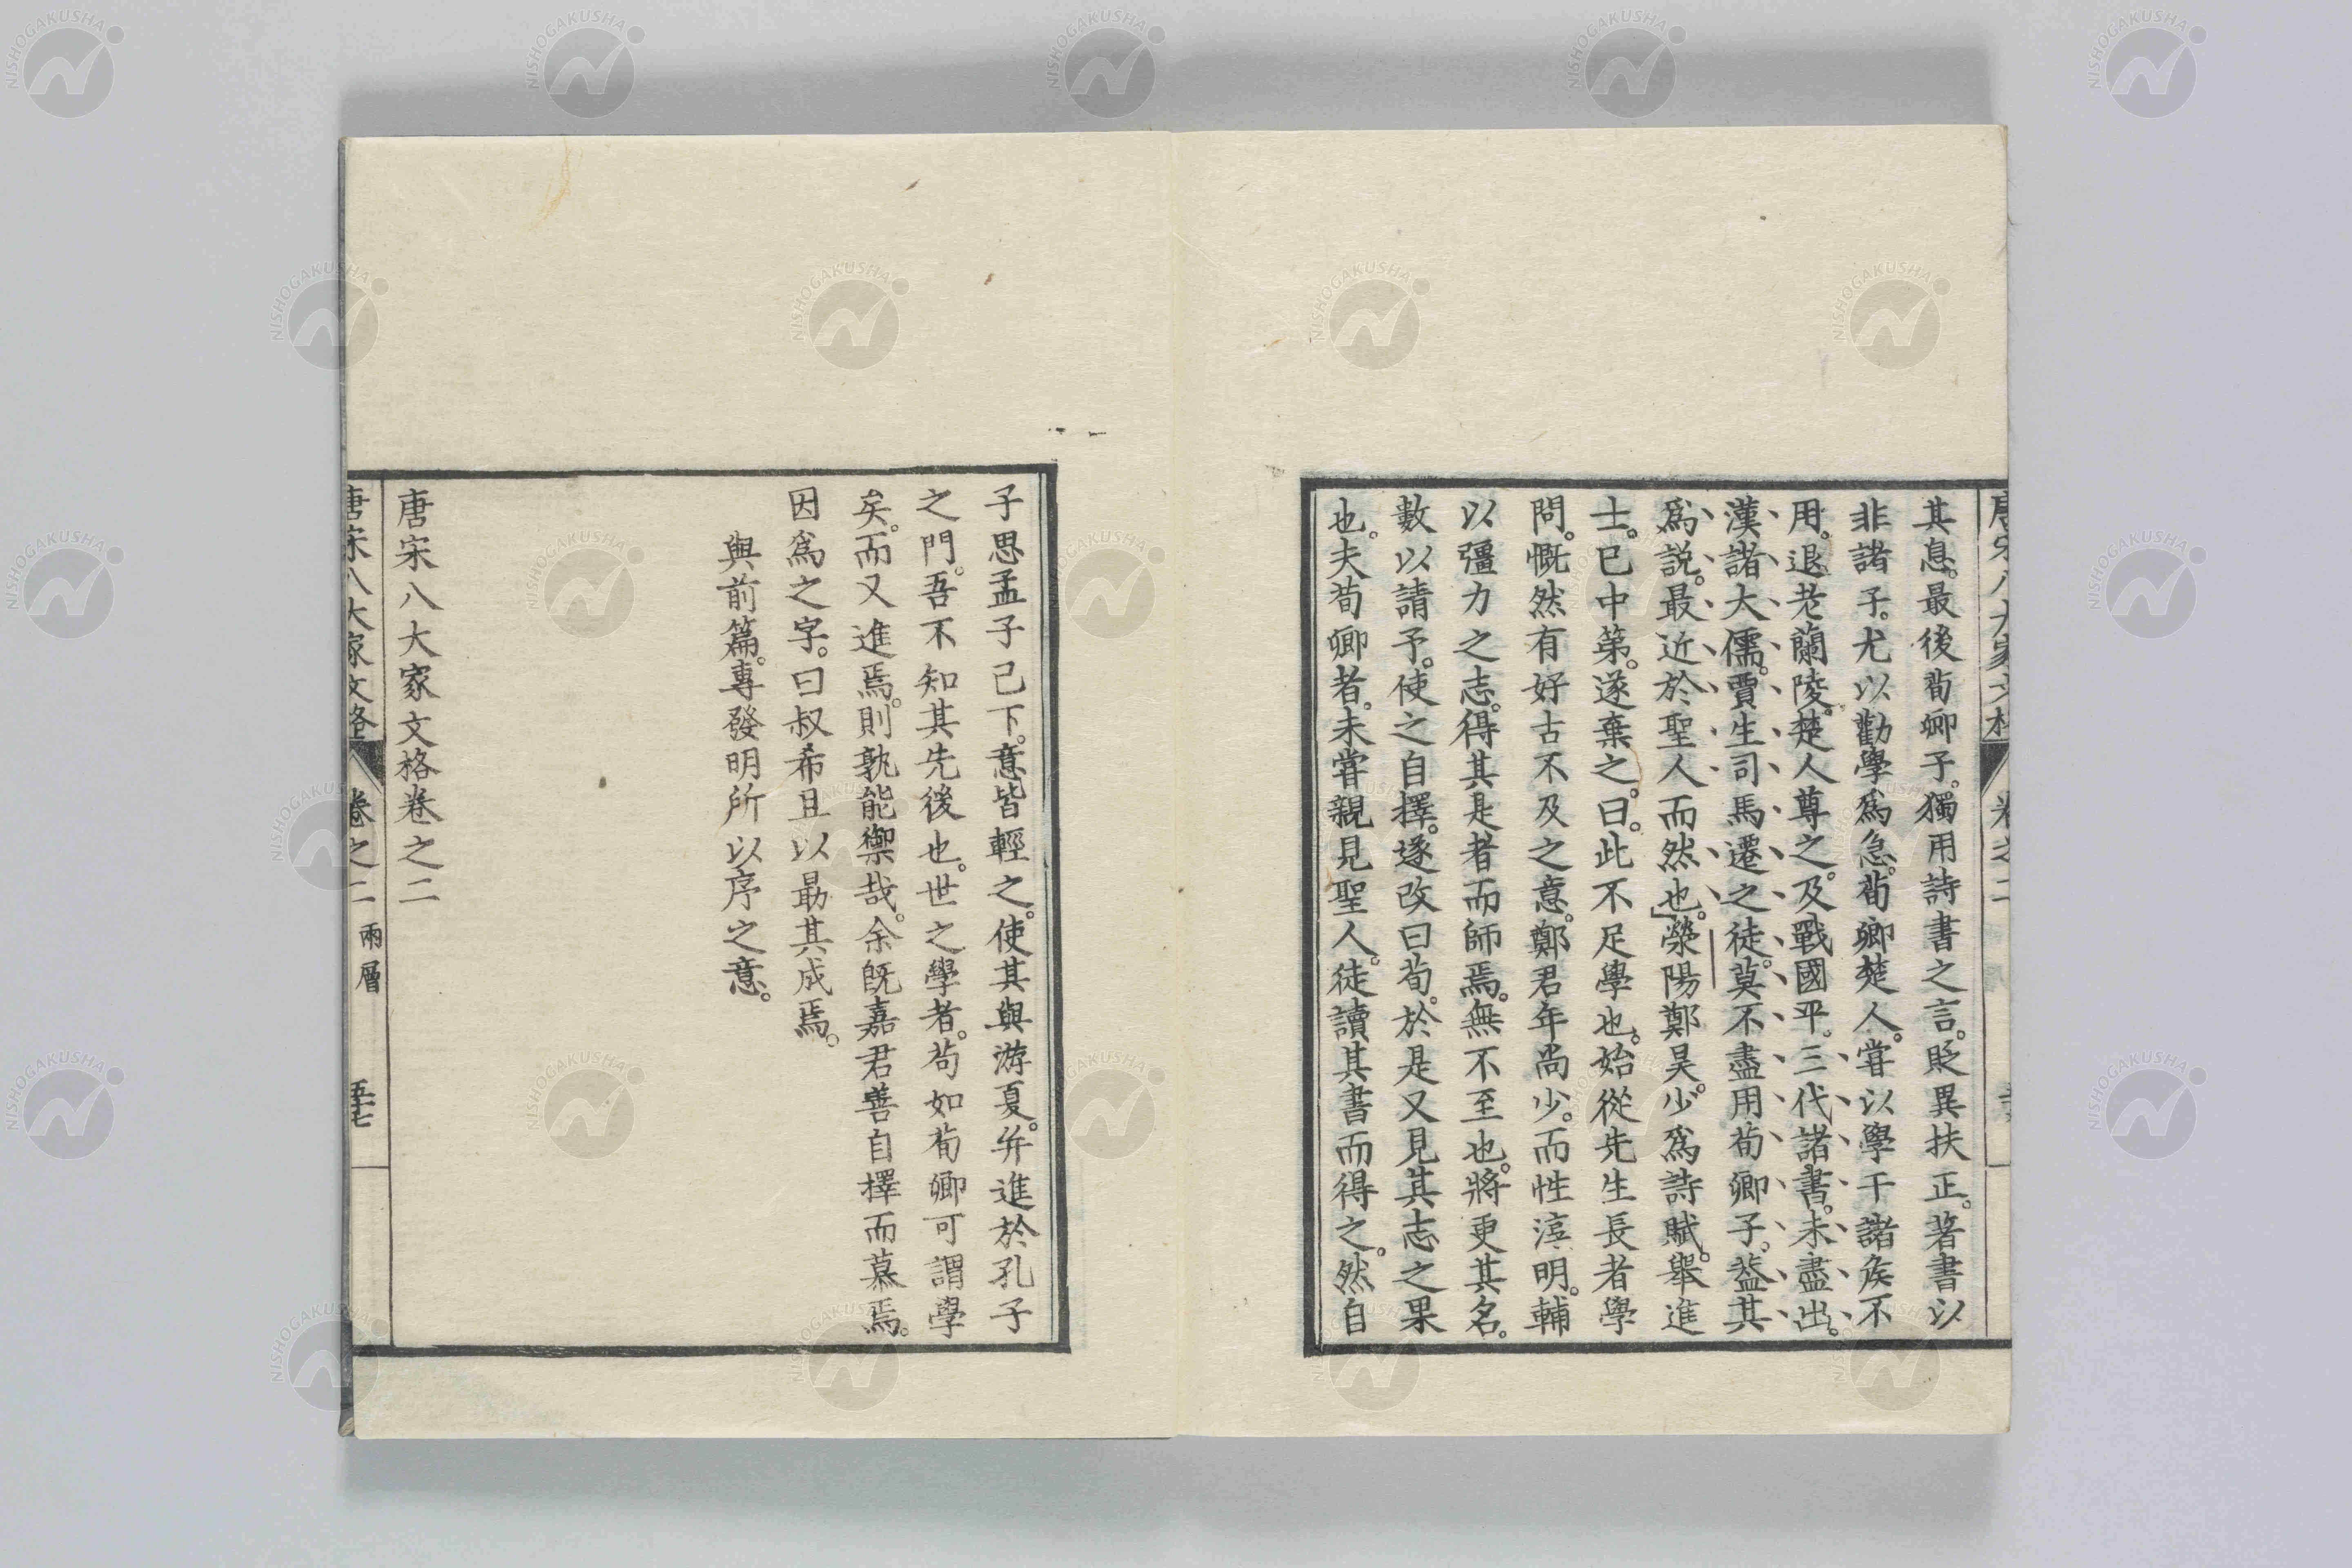 其息。最後荀卿子。獨用詩書之言。貶異扶正。著書以
非諸子。尤以勸學爲急。荀卿楚人。嘗以學干諸矦不
用。退老蘭陵。楚人尊之。及戰國平。三代諸書。未盡出。
漢諸大儒。賈生司馬遷之徒。莫不盡用荀卿子。葢其
爲説。最近於聖人而然也。滎陽鄭昊。少爲詩賦。舉進
士。已中第。遂棄之。曰。此不足學也。始從先生長者學
問。慨然有好古不及之意。鄭君年尚少。而性淳明。輔
以彊力之志。得其是者而師焉。無不至也。將更其名。
數以請予。使之自擇。遂改曰荀。於是又見其志之果
也。夫荀卿者。未嘗親見聖人。徒讀其書而得之。然自
子思孟子已下。意皆輕之。使其與游夏。幷進於孔子
之門。吾不知其先後也。世之學者。苟如荀卿可謂學
矣。而又進焉。則孰能禦哉。余既嘉君善自擇而慕焉。
因爲之字。曰叔希且以勗其成焉。
與前篇。專發明所以序之意。
唐宋八大家文格卷之二
唐宋八大家文格 卷之二 兩層 五十七
NISHOGAKUSHA